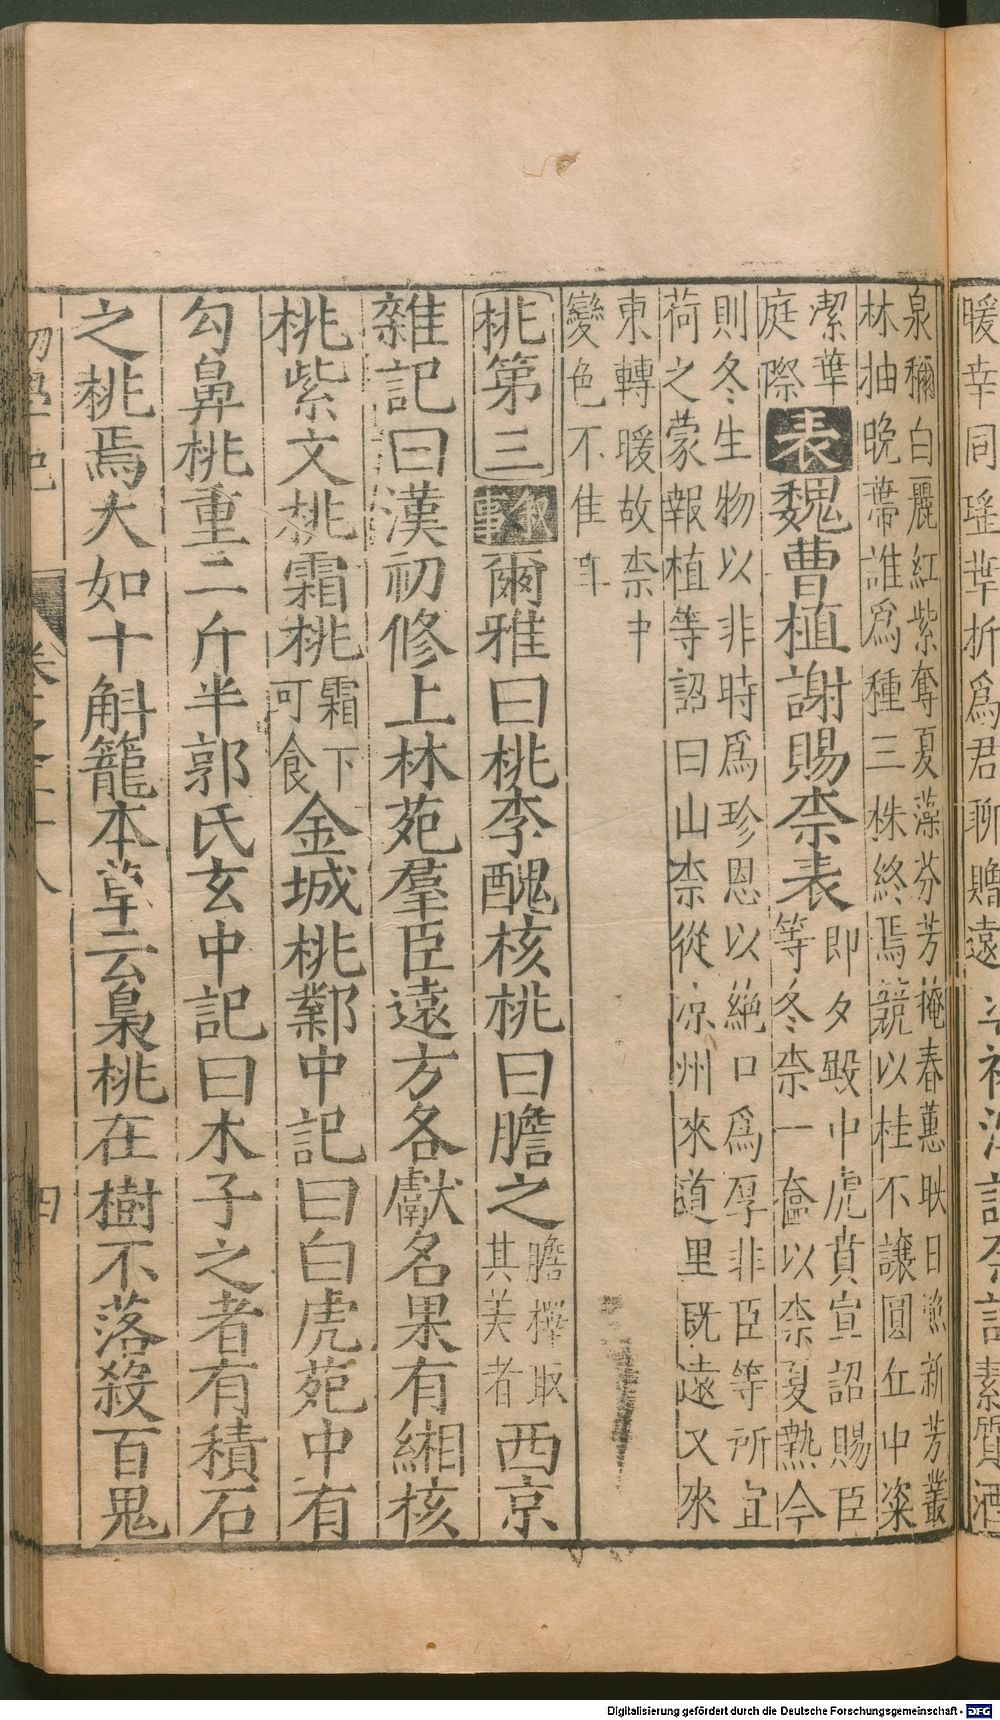 暖幸同瑤華折爲君聊贈遠
素質酒
泉稱白麗紅紫奪夏藻芬芳掩春蕙映日照新芳叢
林抽晚蔕誰爲種三株終焉競以桂不讓圓丘中粢
潔華
庭際
表魏曹植謝賜柰表
即夕殿中虎賁宣詔賜臣
等冬柰一奩以柰夏熟今
則冬生物以非時爲珍恩以絶口爲厚非臣等所宜
荷之蒙報植等詔曰山柰從凉州來道里既遠又來
東轉暖故柰中
變色不佳耳
桃第三敘事爾雅曰桃李醜核桃曰膽之
膽擇取
其美者
西京
雜記曰漢初修上林苑羣臣遠方各獻名果有緗核
桃紫文桃霜桃
霜下
可食
金城桃鄴中記曰白虎苑中有
勾鼻桃重二斤半郭氏玄中記曰木子之者有積石
之桃焉大如十斛籠本草云梟桃在樹不落殺百鬼
初學記
卷之二十八
四
Digitalisierung gefördert durch die Deutsche Forschungsgemeinschaft - DFG